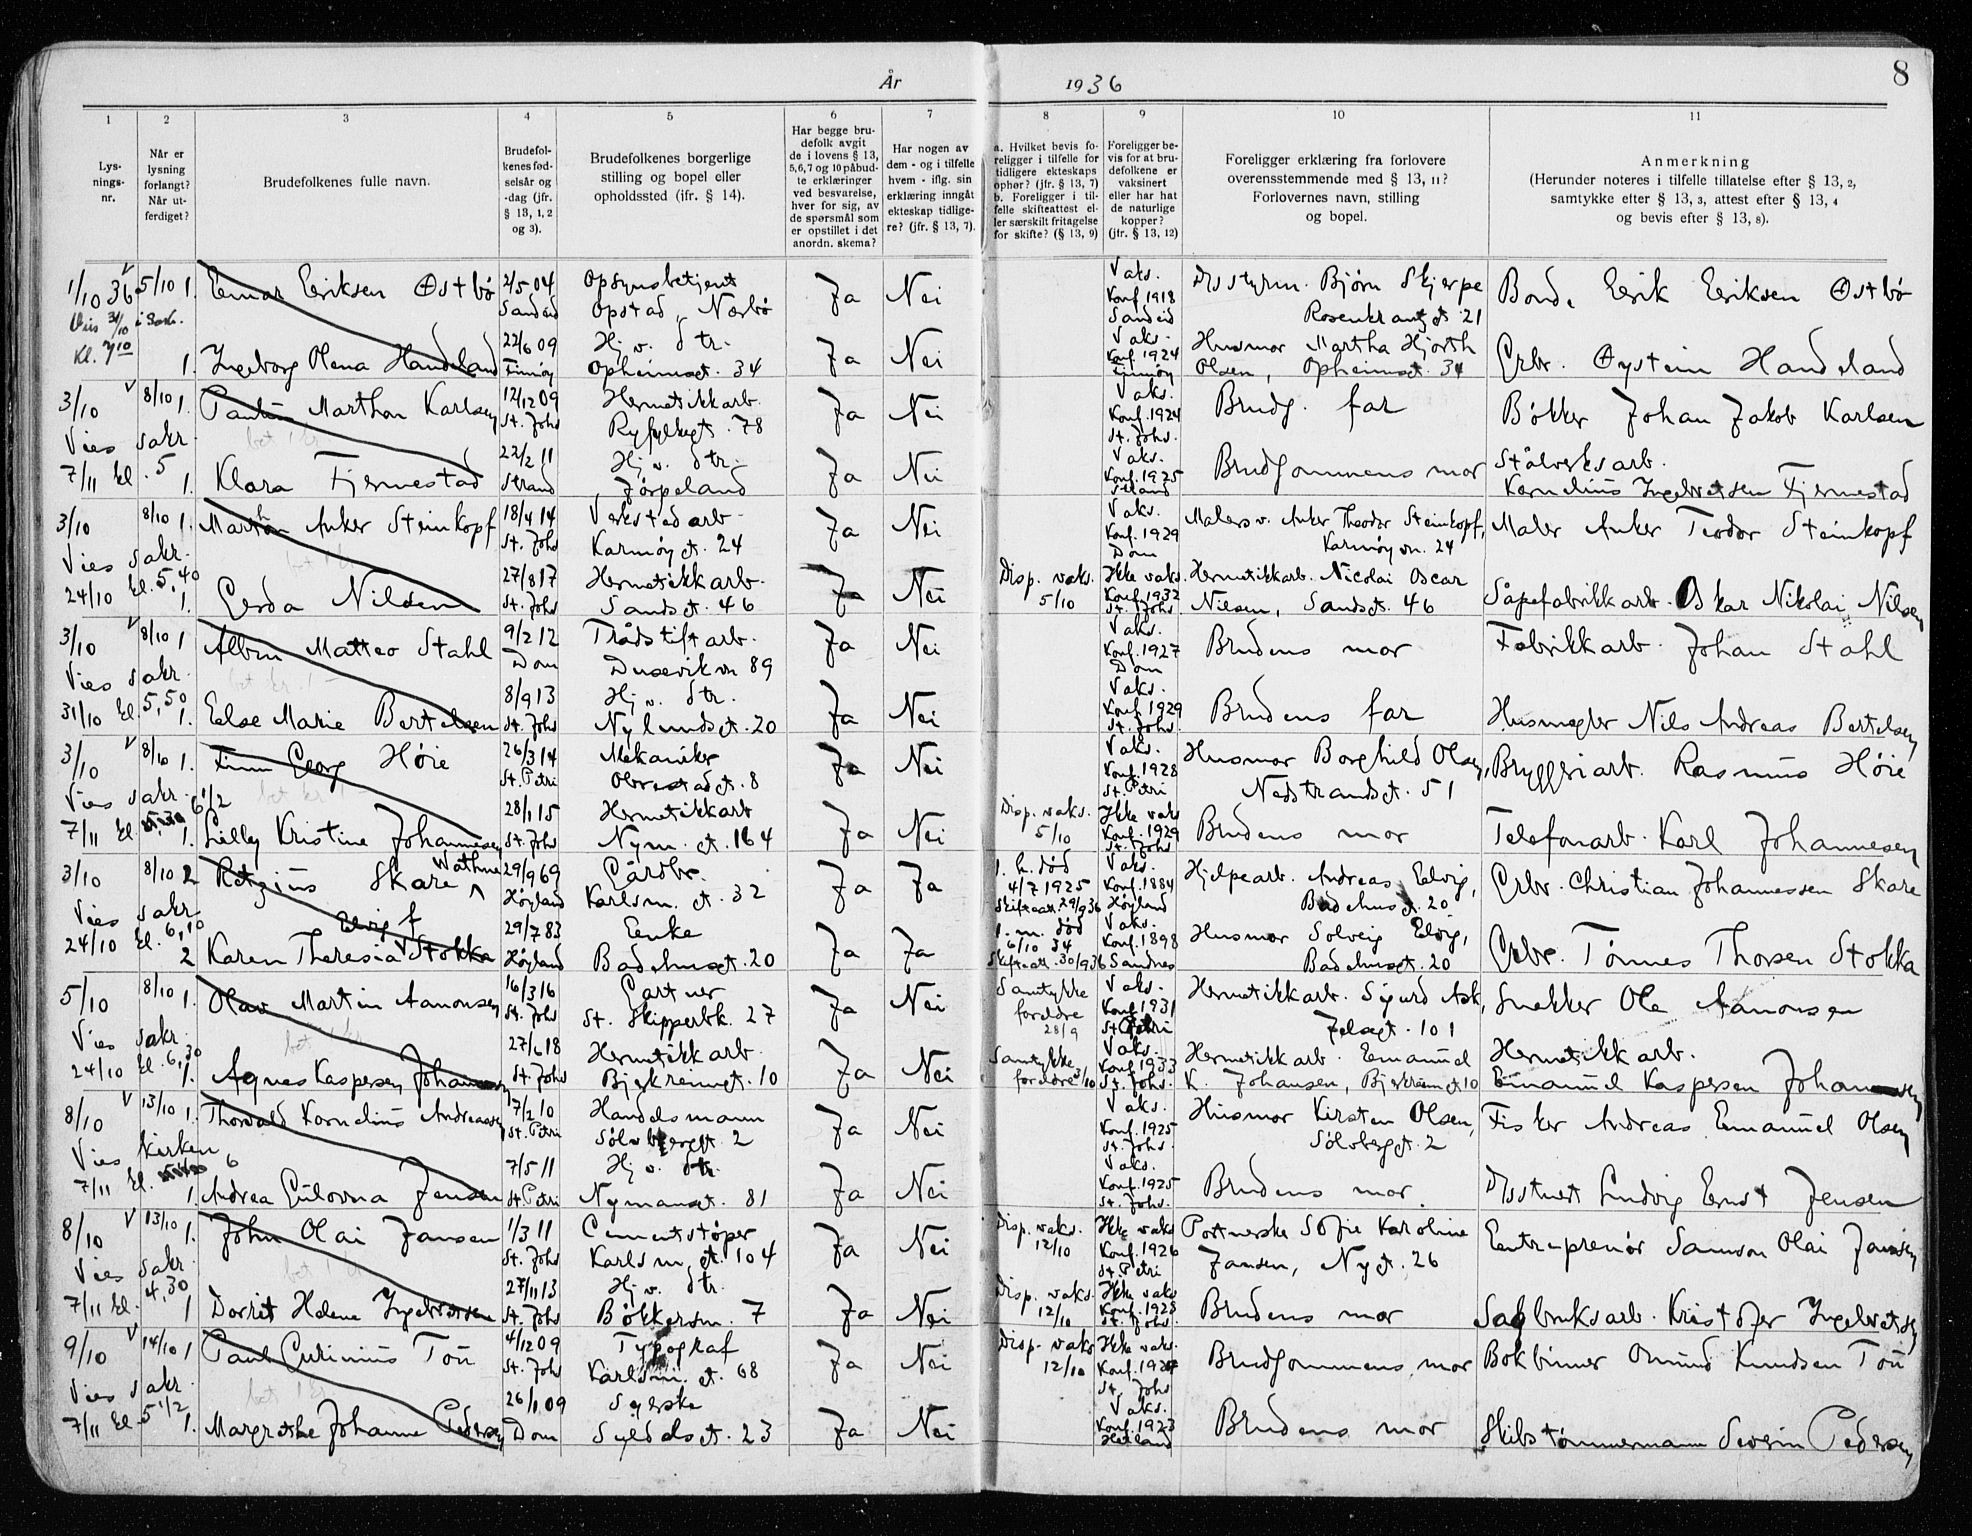 År 1936
8
1 2 3 4 5 6 7 8 9 10 11
Lys-
nings-
nr.
Når er
lysning
forlangt?
Når ut-
ferdiget?
Brudefolkenes fulle navn.
Brudefol-
kenes fød-
selsår og
-dag (jfr.
§ 13, 1, 2
og 3).
Brudefolkenes borgerlige
stilling og bopel eller
opholdssted (ifr. § 14).
Har begge bru-
defolk avgit
de i lovens § 13,
5,6,7 og 10 påbud-
te erklæringer
ved besvarelse,
hver for sig, av
de spørsmål som
er opstillet i det
anordn. skema?
Har nogen av
dem - og i tilfelle
hvem - iflg. sin
erklæring inngåt
ekteskap tidlige-
re? (jfr. § 13, 7).
a. Hvilket bevis fo-
religger i tilfelle for
tidligere ekteskaps
ophør? (jfr. § 13, 7)
b. Foreligger i til-
felle skifteattest el-
ler særskilt fritagelse
for skifte? (§ 13, 9)
Foreligger be-
vis for at bru-
defolkene er
vaksinert
eller har hat
de naturlige
kopper?
(jfr. § 13, 12)
Foreligger erklæring fra forlovere
overensstemmende med § 13, 11?
Forlovernes navn, stilling
og bopel.
Anmerkning
(Herunder noteres i tilfelle tillatelse efter § 13, 2,
samtykke efter § 13, 3, attest efter § 13, 4
og bevis efter § 13, 8).
1/10 36 5/10 1. Einar Eriksen Østbø 2/5 04 Opsynsbetjent Ja Nei Vaks. D/s styrm. Bjørn Skjerpe Bonde Eerik Eeriksen Østbø
Sandeid Opstad, Nærbø Konf. 1918 Sandeid Rosenkrantzgt. 21
Kl. 7 10 1. Ingeborg Olena Handeland 22/6 09 Hj. v. Str. Ja Nei Vaks. Husmor Martha Hjorth Grbr. Øystein Handeland
Finnøy Opheimsgt. 34 Konf. 1924 Finnøy Olsen, Opheimsgt. 34
3/10 8/10 1. Marthon Karlsen 12/12 09 Hermetikkarb. Ja Nei Vaks. Brudg. far Bøkker Johan Jakob Karlsen
Vies sakr. St. Johs Ryfylkegt. 78 Konf. 1924 St. Johs.
7/11 kl. 5 1. Klara Fjermestad 22/2 11 Hj. v. Str. Ja Nei Vaks. Brudgommens mor Stålverksarb.
Strand Jørpeland Konf. 1925 Strand Kornelius Ingebretsen Fjermestad
3/10 8/10 1. Anker Steinkopf 18/4 14 Verkstedarb. Ja Nei Vaks. Malersv. Anker Theodor Steinkopf, Maler Anker Teodor Steinkopf
Vies sakr. St. Johs Karmøygt. 24 Konf. 1929 Dom Karmøyvn. 24
24/10 kl. 5,40 1. Gerda Nilsen 27/8 17 Hermetikkarb. Ja Nei Disp. vaks. Ikke vaks. Hermetikkarb. Nicolai Oscar Såpefabrikkarb. Oskar Nikolai Nilsen
St. Johs Sandsgt. 46 5/10 Konf. 1932 St. Johs Nilsen, Sandsgt. 46
3/10 8/10 1 Albin Matteo Stahl 9/2 12 Trådstiftarb. Ja Nei Vaks. Brudens mor Fabrikkarb. Johan Stahl
Vies sakr. Dom Dusevikvn 89 Konf. 1927 Dom
31/10 kl. 5,50 1. Else Marie Bertelsen 8/9 13 Hj. v. Str. Ja Nei Vaks. Brudens far Husmegler Nils Andreas Bertelsen
St. Johs Nylundsgt. 20 Konf. 1929 St. Johs.
3/10 8/10 1. Finn Georg Høie 26/3 14 Mekaniker Ja Nei Vaks. Husmor Borghild Olsen, Bryggeriarb. Rasmus Høie
Vies sakr. St. Petri Obrestadgt. 8 Konf. 1928 St. Petri Nedstrandsgt. 51
7/11 kl. 6 1/2 1. Lilly Kristine Johannesen 28/1 15 Hermetikkarb Ja Nei Disp. vaks. Ikke vaks Brudens mor Telefonarb. Karl Johannesen
St. Johs Nym. gt. 164 5/10 Konf. 1929 St. Johs
3/10 8/10 2 Retzius Skare Wathne 29/9 69 Gårdbr. Ja Ja 1. h. død Vaks. Hjelpearb. Andreas Eelvig, Grbr. Christian Johannessen Skare
Vies sakr. Høyland Karlsm. gt. 32 4/7 1925 Konf. 1884 Høyland Badehusgt. 20
Skifteatt. 29/9 36
24/10 kl. 6,10 2 Karen Theresia Elvig f Stokka 29/7 83 Eenke Ja Ja 1. m. død Vaks. Husmor Solveig Eelvig, Grbr. Tønnes Thorsen Stokka
Høyland Badehusgt. 20 6/10 34 Konf. 1898 Sandnes Badehusgt. 20
Skifteatt. 30/9 36
5/10 8/10 1. Olav Martin Aamonsen 16/3 16 Gartner Ja Nei Samtykke Vaks. Hermetikkarb. Sigurd Ask, Snekker Ole Aamonsen
Vies sakr. St. Johs St. Skipperbk. 27 foreldre 28/9 Konf. 1931 St. Petri Jelsagt. 101
24/10 kl. 6,30 1. Agnes Kaspersen Johannesen 27/6 18 Hermetikkarb. Ja Nei Samtykke Vaks. Hermetikkarb. Eemanuel Hermetikkarb.
St. Johs Bjerkreimgt. 10 foreldre 3/10 Konf. 1933 St. Johs. K. Johansen, Bjerkreimgt 10 Emanuel Kaspersen Johannesen
8/10 13/10 1. Thorvald Kornelius Andreassen 7/2 10 Handelsmann Ja Nei Vaks. Husmor Kirsten Olsen, Fisker Andreas Emanuel Olsen
Vies kirken St. Petri Sølvberggt. 2 Konf. 1925 St. Johs. Sølvberggt. 2
7/11 kl. 6 1. Andrea Jensen 7/5 11 Hj. v. Str. Ja Nei Vaks. Brudens mor. D/s stuert Ludvig Ernst Jensen
St. Petri Nymansgt. 81 Konf. 1925 St. Johs.
8/10 13/10 1. John Olai Jansen 1/3 11 Cementstøper Ja Nei Disp. vaks. Ikke vaks Portnerske Sofie Karoline Eentreprenør Samson Olai Jansen
Vies sakr. St. Johs Karlsm. gt. 104 12/10 Konf. 1926 St. Petri Jansen, Nygt. 26
7/11 kl. 4,30 1 Dorrit Helene Ingebretsen 27/11 13 Hj. v. Str. Ja Nei Disp. vaks. Ikke vaks Brudens mor Sagbruksarb. Kristofer Ingebretsen
St. Johs Bøkkersm. 7 12/10 Konf. 1928 St. Johs.
9/10 14/10 1 Paul Tou 4/12 09 Typograf Ja Nei Disp. vaks Ikke vaks. Brudgommens mor Bokbinner Omund Knudsen Tou
Vies sakr. St. Johs Karlsm. gt. 68 12/10 St. Johs
7/11 kl. 5 1/2 1. Margrethe Johanne Pedersen 26/1 09 Syerske Ja Nei Vaks. Brudens mor Skibstømmermann Severin Pedersen
Dom Syldalsgt. 23 Konf. 1923 Hetland